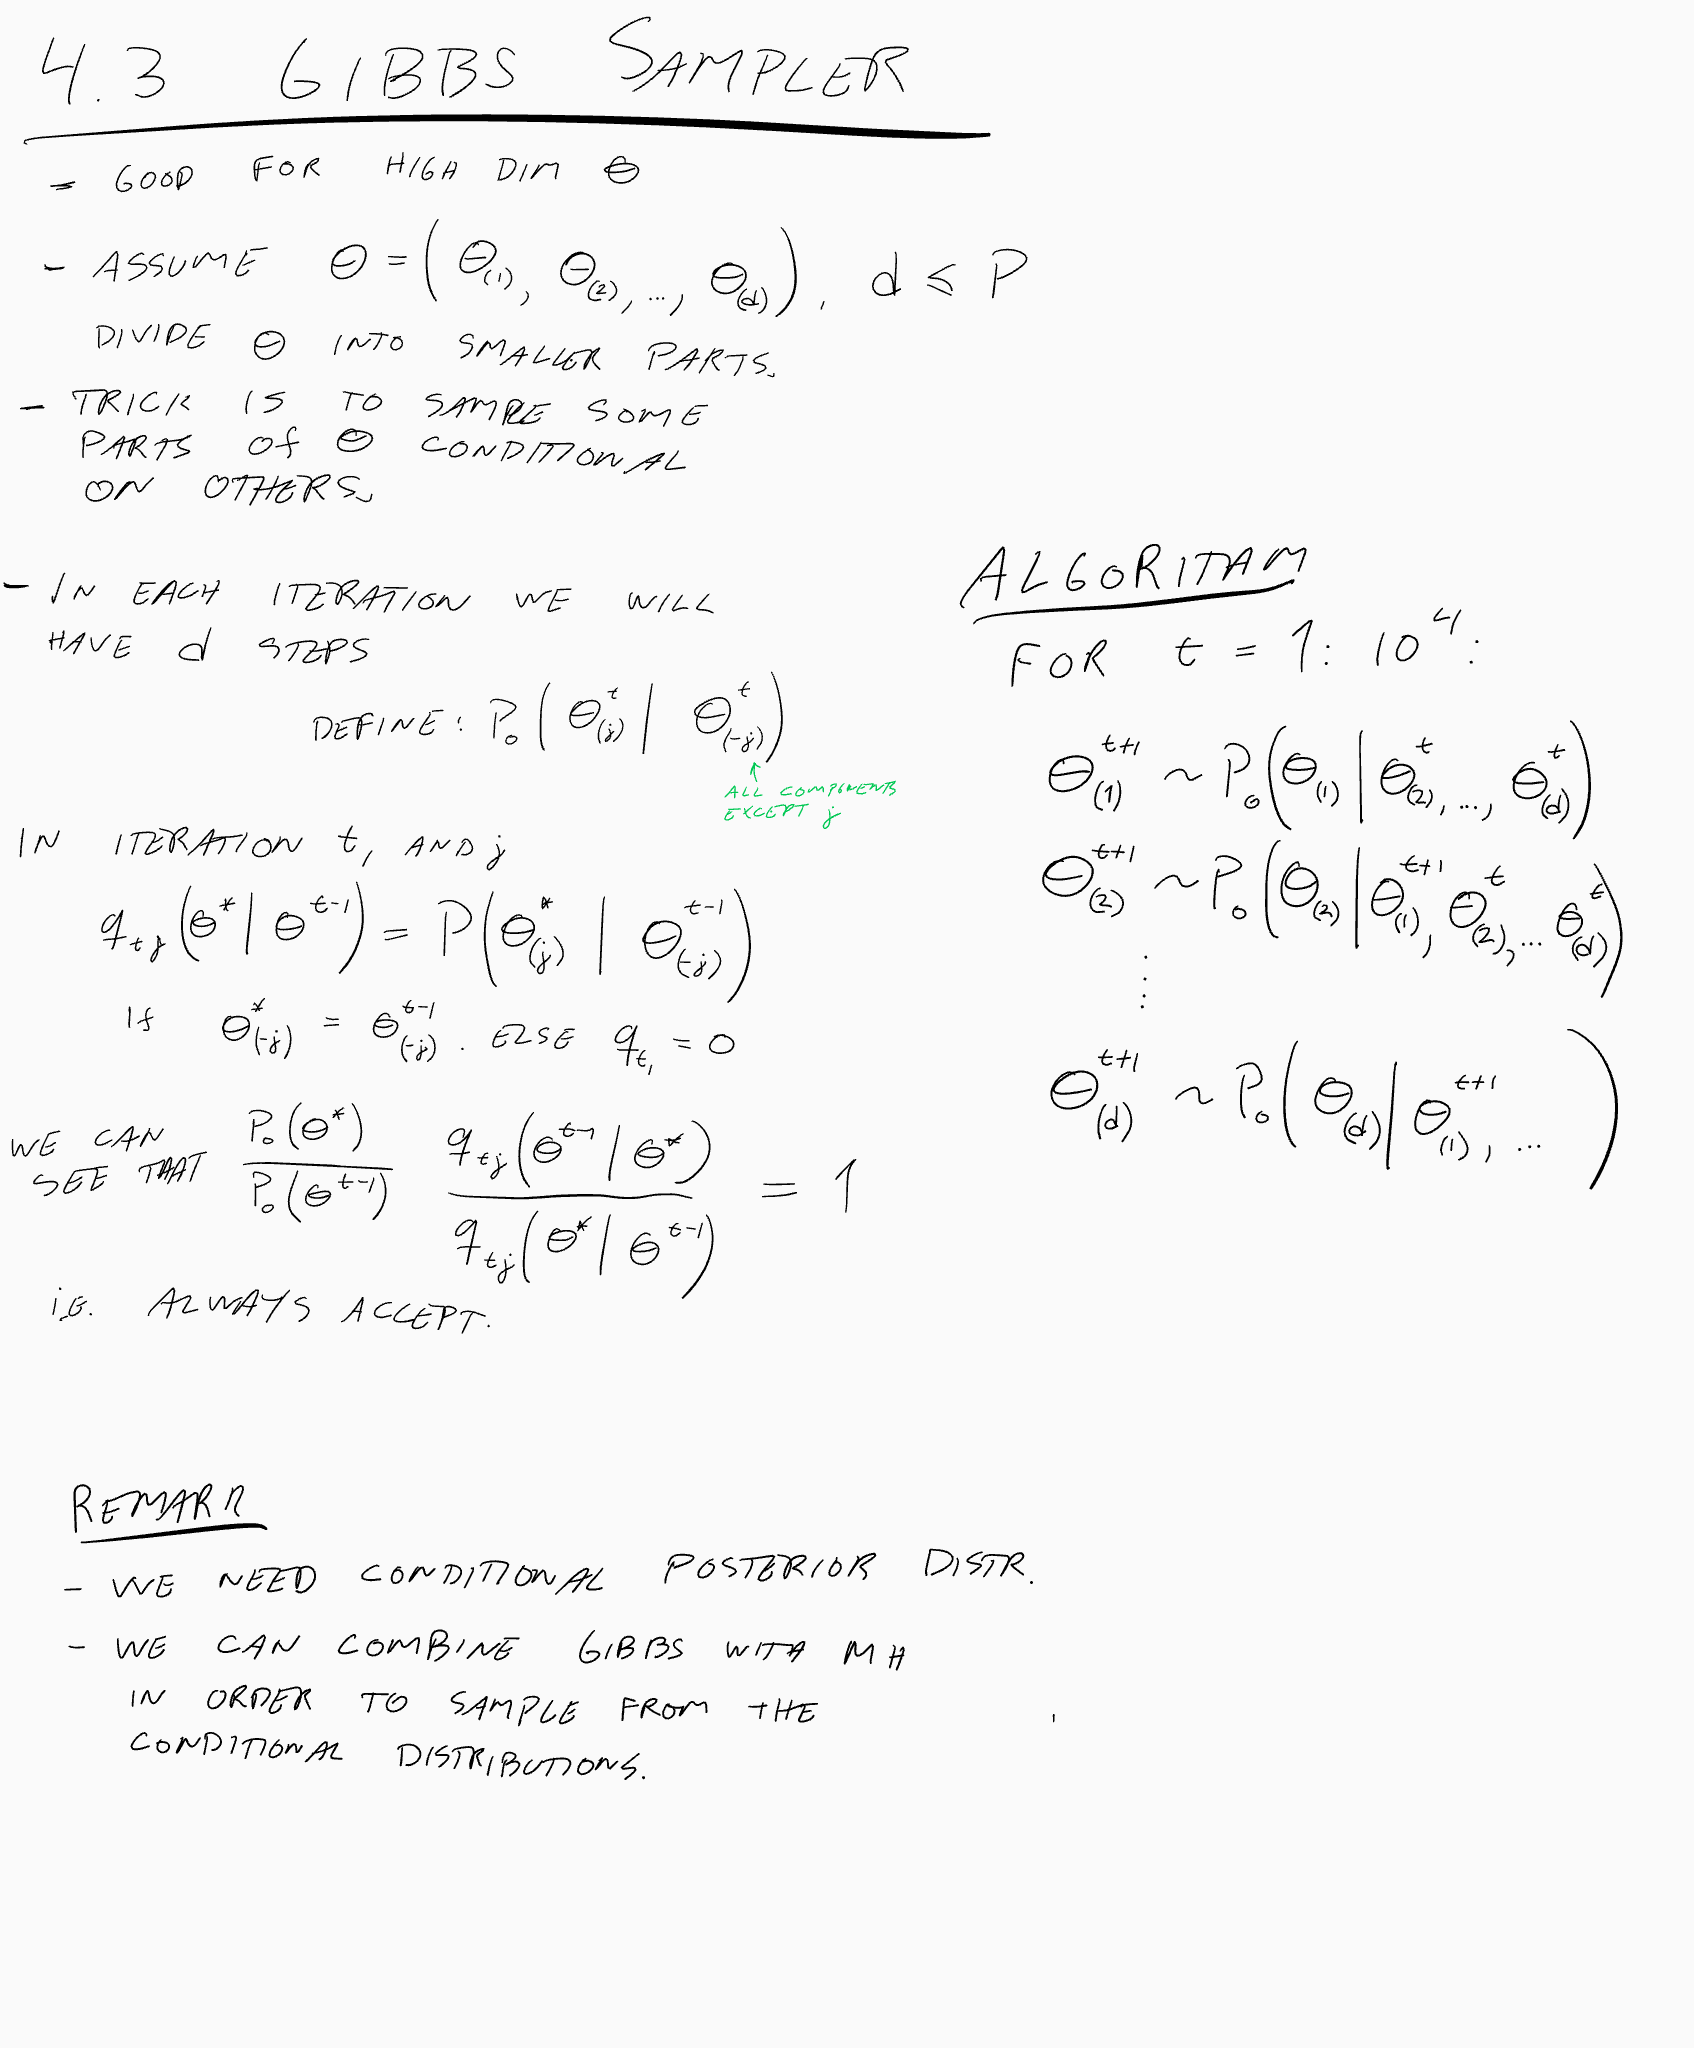 4.3 GIBBS SAMPLER
- GOOD FOR HIGH DIM θ
- ASSUME θ = (θ_(1), θ_(2), ..., θ_(d)), d ≤ P
DIVIDE θ INTO SMALLER PARTS.
- TRICK IS TO SAMPLE SOME
PARTS Of θ CONDITIONAL
ON OTHERS.
- IN EACH ITERATION WE WILL
HAVE d STEPS
DEFINE: P_0(θ_(j)^t | θ_(-j)^t)
↑
ALL COMPONENTS
EXCEPT j
IN ITERATION t, AND j
q_tj(θ^* | θ^{t-1}) = P(θ_(j)^* | θ_(-j)^{t-1})
If θ_(-j)^* = θ_(-j)^{t-1}. ELSE q_t, = 0
WE CAN
SEE THAT P_0(θ^*) / P_0(θ^{t-1}) q_tj(θ^{t-1} | θ^*) / q_tj(θ^* | θ^{t-1}) = 1
i.e. ALWAYS ACCEPT.
ALGORITAM
FOR t = 1: 10^4:
θ_(1)^{t+1} ~ P_0(θ_(1) | θ_(2)^t, ..., θ_(d)^t)
θ_(2)^{t+1} ~ P_0(θ_(2) | θ_(1)^{t+1}, θ_(2)^t, ... θ_(d)^t)
⋮
θ_(d)^{t+1} ~ P_0(θ_(d) | θ_(1)^{t+1}, ... )
REMARK
- WE NEED CONDITIONAL POSTERIOR DISTR.
- WE CAN COMBINE GIBBS WITH MH
IN ORDER TO SAMPLE FROM THE
CONDITIONAL DISTRIBUTIONS.